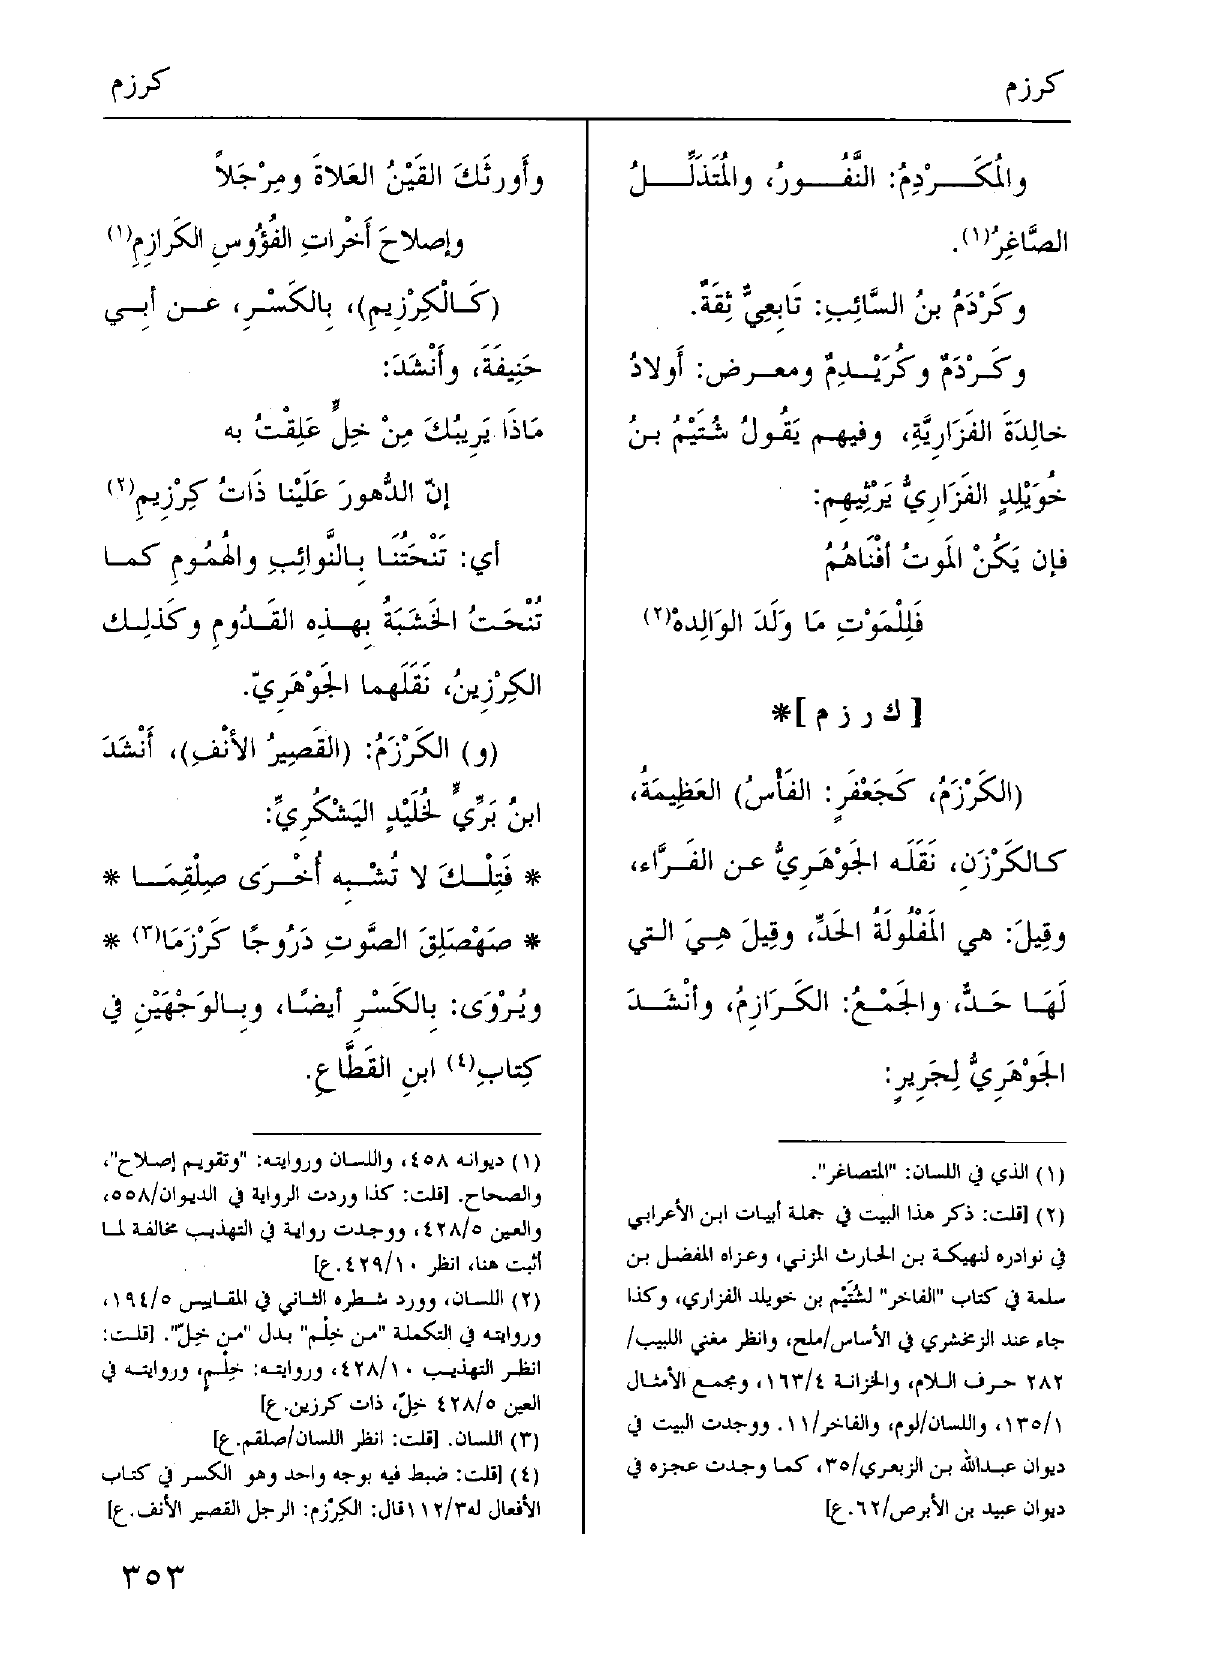 كرزم
كرزم
والمُكَـــرْدِمُ: النَّفُـــورُ، والمُتَذَلِّـــلُ
الصَّاغِرُ(١).
وكَرْدَمُ بنُ السَّائِبِ: تَابِعِيٌّ ثِقَةٌ.
وكَـرْدَمٌ وكُرَيْـدِمٌ ومعـرض: أَولادُ
خالِدَةَ الفَزَارِيَّةِ، وفيهم يَقُولُ شُتَيْمُ بنُ
خُوَيْلِدٍ الفَزَارِيُّ يَرْثِيهِم:
فإن يَكُنْ المَوتُ أَفْنَاهُمُ
فَلِلْمَوْتِ مَا وَلَدَ الوَالِدهْ(٢)
[ك ر ز م]*
(الكَرْزَمُ، كَجَعْفَرٍ: الفَأْسُ) العَظِيمَةُ،
كـالكَرْزَنِ، نَقَلَـه الجَوْهَرِيُّ عـن الفَـرَّاء،
وقِيلَ: هي المَفْلُولَةُ الحَدِّ، وقِيلَ هِـيَ الـتي
لَهَـا حَـدٌّ، والجَمْعُ: الكَـرَازِمُ، وأَنْشَـدَ
الجَوْهَرِيُّ لِجَرِيرٍ:
(١) الذي في اللسان: "المتصاغر".
(٢) [قلت: ذكر هذا البيت في جملة أبيات ابن الأعرابي
في نوادره لنهيكة بن الحارث المزني، وعزاه المفضل بن
سلمة في كتاب "الفاخر" لشُتَيْم بن خويلد الفزاري، وكذا
جاء عند الزمخشري في الأساس/ملح، وانظر مغني اللبيب/
٢٨٢ حرف اللام، والخزانة ١٦٣/٤، ومجمع الأمثال
١٣٥/١، واللسان/لوم، والفاخر/١١. ووجدت البيت في
ديوان عبدالله بن الزبعرى/٣٥، كما وجدت عجزه في
ديوان عبيد بن الأبرص/٦٢.ع]
وأَورثَكَ القَيْنُ العَلاةَ ومِرْجَلاً
وإصلاحَ أَخْراتِ الفُؤُوسِ الكَرازِمِ(١)
(كَـالْكِرْزِيم)، بِالكَسْـرِ، عـن أبـي
حَنِيفَةَ، وأَنْشَدَ:
مَاذَا يَرِيبُكَ مِنْ خِلٍّ عَلِقْتُ به
إنّ الدُّهورَ عَلَيْنا ذَاتُ كِرْزِيمِ(٢)
أي: تَنْحَتُنَا بـالنَّوائِبِ والهُمُومِ كمـا
تُنْحَـتُ الخَشَبَةُ بهـذِه القَـدُومِ وكَذلِـكَ
الكِرْزِينُ، نَقَلَهما الجَوْهَرِيّ.
(و) الكَرْزَمُ: (القَصِيرُ الأَنْفِ)، أَنْشَدَ
ابنُ بَرِّيٍّ لخُلَيْدٍ اليَشْكُرِيِّ:
* فَتِلْـكَ لا تُشْـبِه أُخْـرَى صِلْقِمَـا *
* صَهْصَلِقَ الصَّوتِ دَرُوجًا كَرْزَمَا(٣) *
ويُرْوَى: بِالكَسْرِ أَيضًـا، وبِـالوَجْهَيْنِ في
كِتابِ(٤) ابنِ القَطَّاعِ.
(١) ديوانه ٤٥٨، واللسان وروايته: "وتقويم إصلاح"،
والصحاح. [قلت: كذا وردت الرواية في الديوان/٥٥٨،
والعين ٤٢٨/٥، ووجدت رواية في التهذيب مخالفة لما
أثبت هنا، انظر ٤٢٩/١٠.ع]
(٢) اللسان، وورد شطره الثاني في المقاييس ١٩٤/٥،
وروايته في التكملة "من خِلْم" بدل "من خِلّ". [قلت:
انظر التهذيب ٤٢٨/١٠، وروايته: خِلْمٍ، وروايته في
العين ٤٢٨/٥ خِلّ، ذات كرزين.ع]
(٣) اللسان. [قلت: انظر اللسان/صلقم.ع]
(٤) [قلت: ضبط فيه بوجه واحد وهو الكسر في كتاب
الأفعال له١١٢/٣قال: الكِرْزم: الرجل القصير الأنف.ع]
٣٥٣